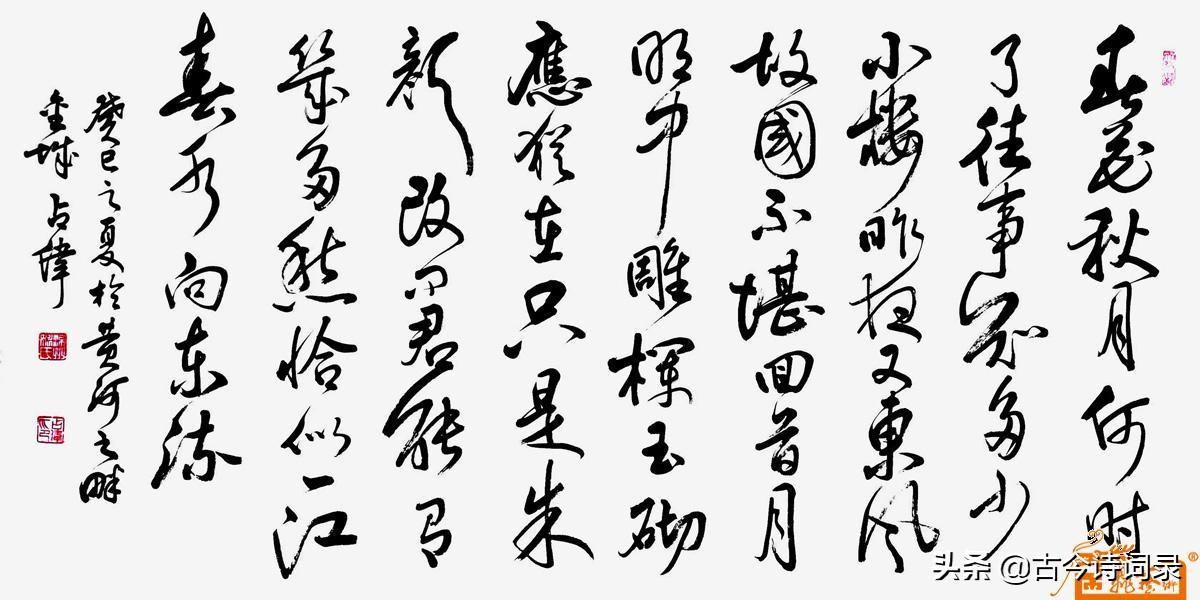 春花秋月何时
了往事知多少
小楼昨夜又東風
故國不堪回首月
明中雕栏玉砌
應犹在只是朱
颜改问君能有
幾多愁恰似一江
春水向东流
癸巳之夏於黄河之畔
金城占
头条 @古今诗词录